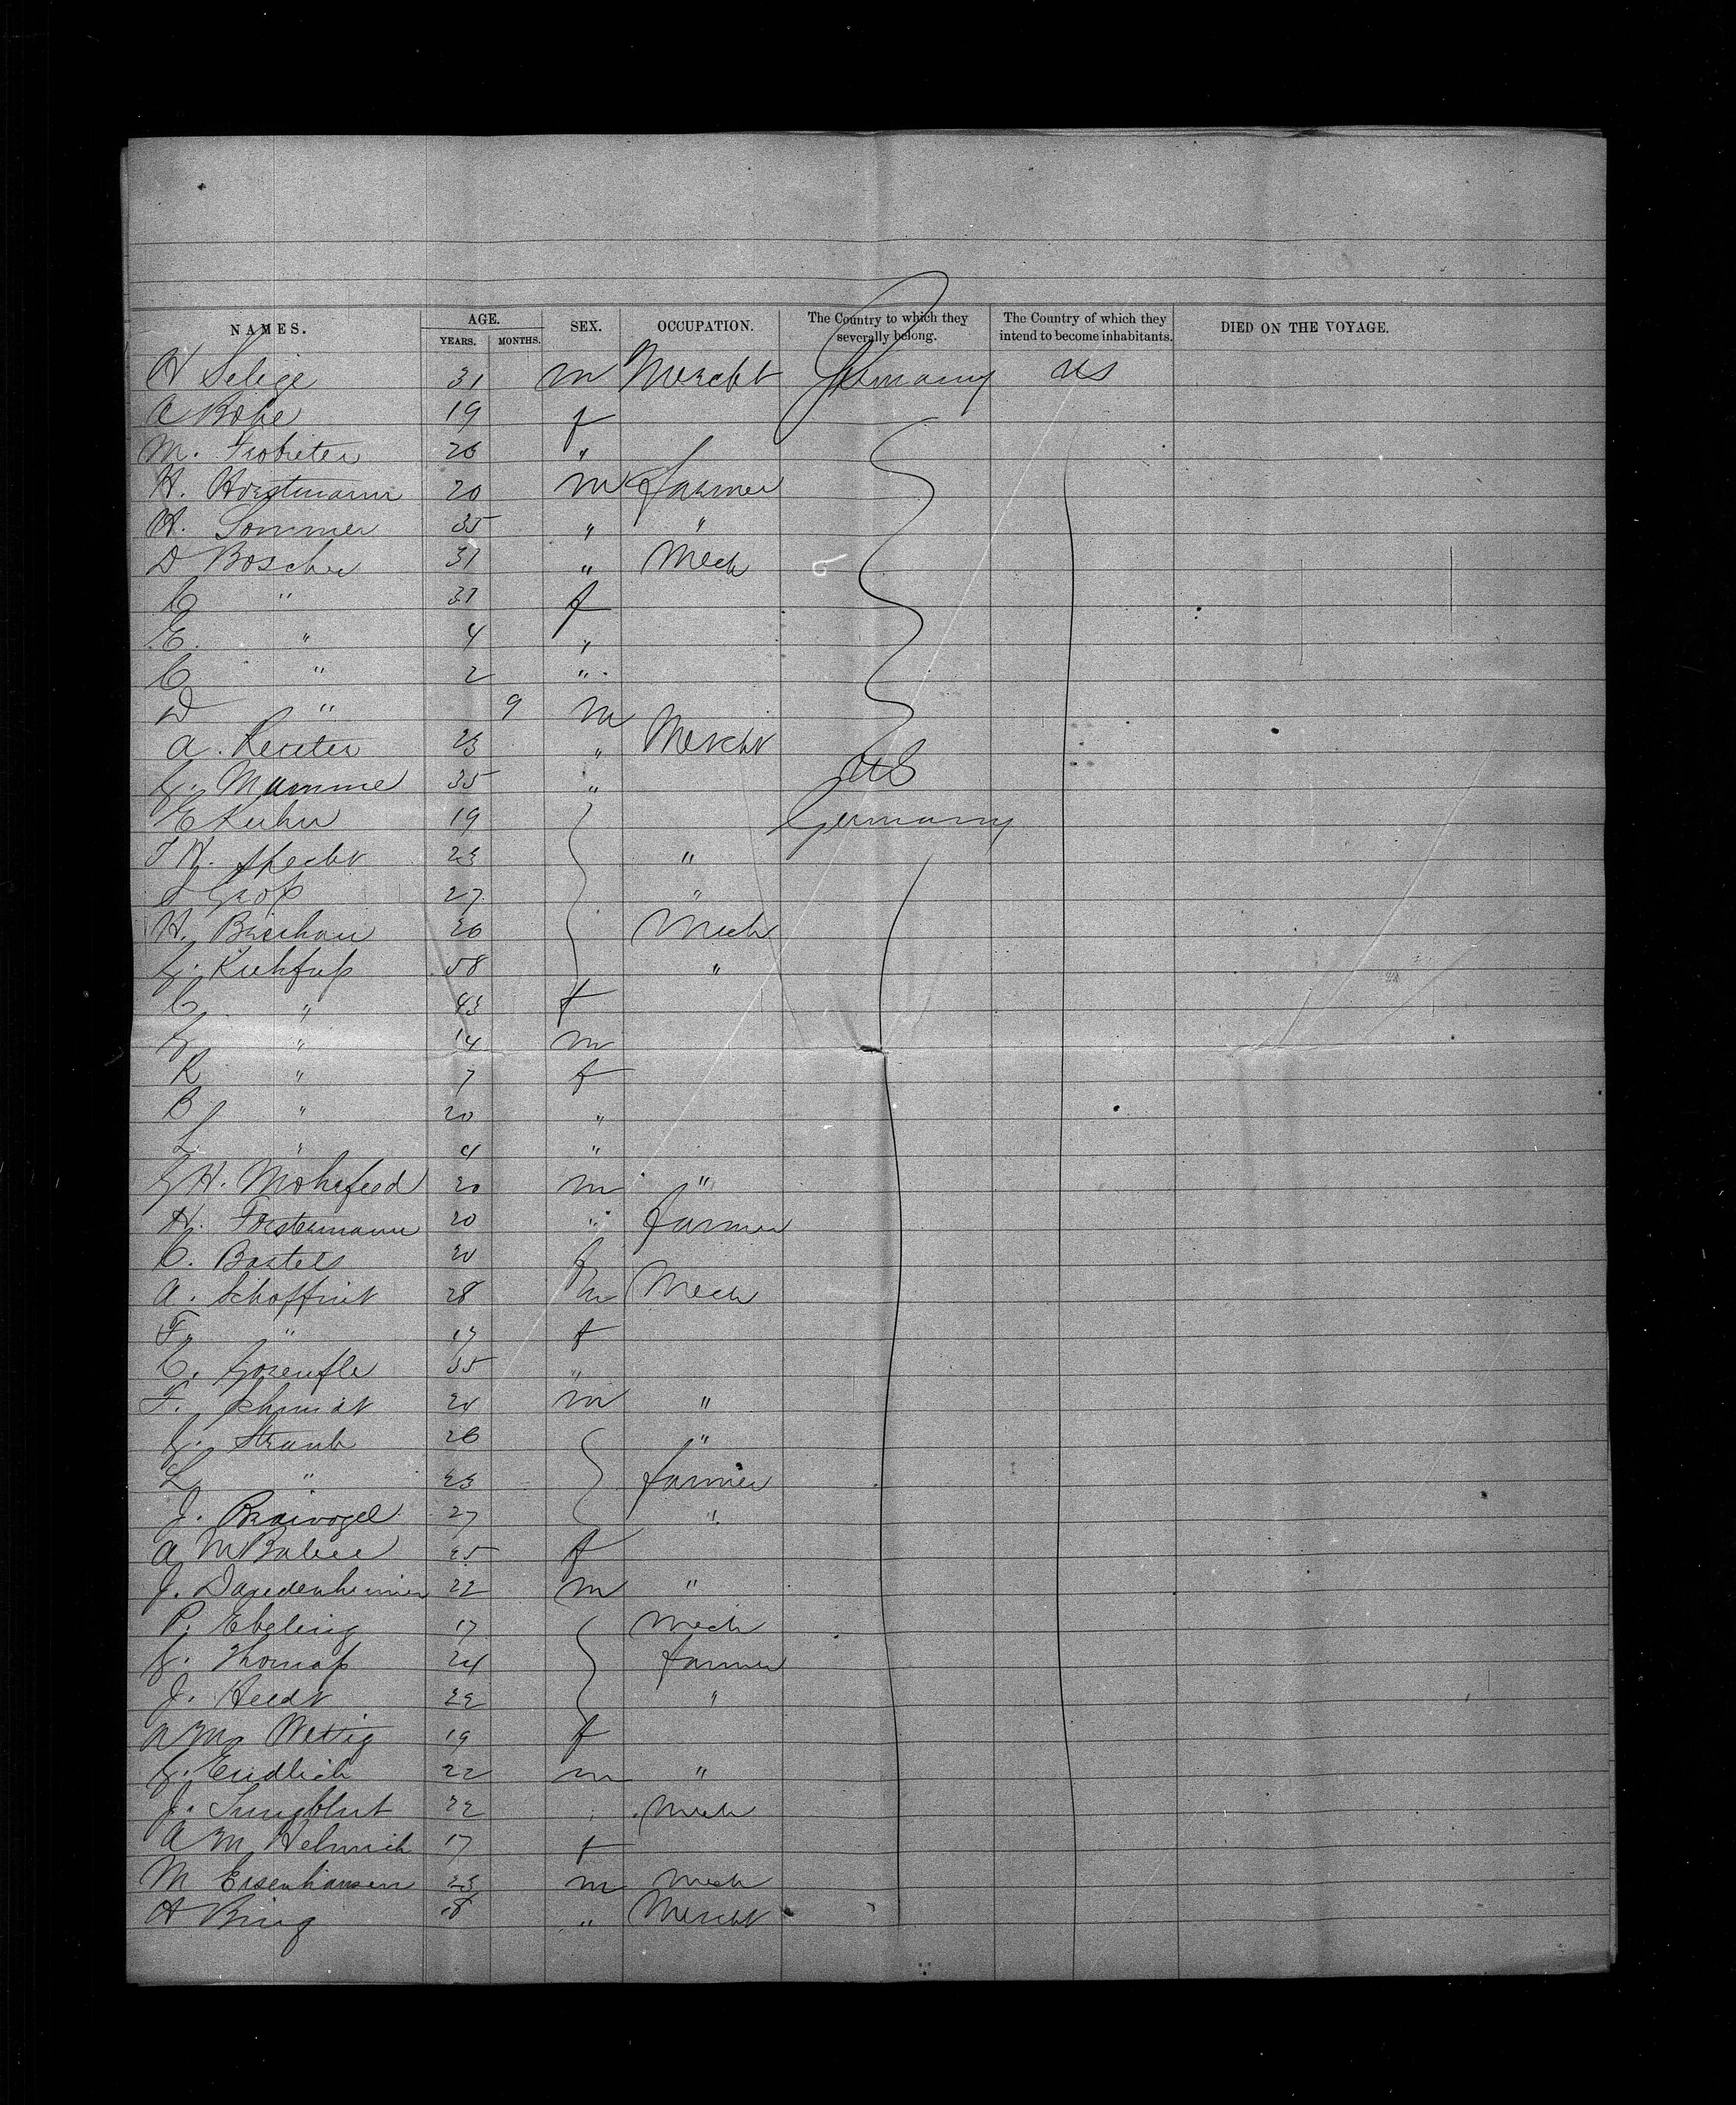 NAMES. AGE. SEX. OCCUPATION. The Country to which they severally belong. The Country of which they intend to become inhabitants. DIED ON THE VOYAGE.
YEARS. MONTHS.
H Selige 31 m Mercht Germany US
A Bohe 19 f
M. Frobieter 26 "
H. Horstmann 20 m farmer
H. Sommer 35 " "
D Boscher 31 " Mech
C " 31 f
E " 4 "
C " 2 "
D " 9 m
A. Reuter 23 " Mercht
G. Mumme 35 " US
E Kuhn 19 Germany
F H. Specht 23 "
S Groß 27 "
H. Bierhau 26 Mech
G. Kuhfuß 58 "
C " 43 f
G " 14 m
R " 7 f
B " 20 "
L " 4 "
G H. Mohefeed 20 m "
H. Forstermann 20 " farmer
C. Bartels 20 f
A. Schoffint 28 m Mech
F. " 17 f
C. 35 "
F. Schmidt 24 m "
G. Straub 26 "
L " 23 farmer
J. Braivogel 27 "
A M 25 f
J. Daudenheimer 22 m "
P. Ebeling 17 Mech
G. Thomaß 24 farmer
J. Heedt 22 "
A M Wettig 19 f
G. Endlich 22 m "
J. Jungblut 22 Mech
A M Helmrich 17 f
M Eisenhauser 23 m Mech
A Bing 18 " Mercht